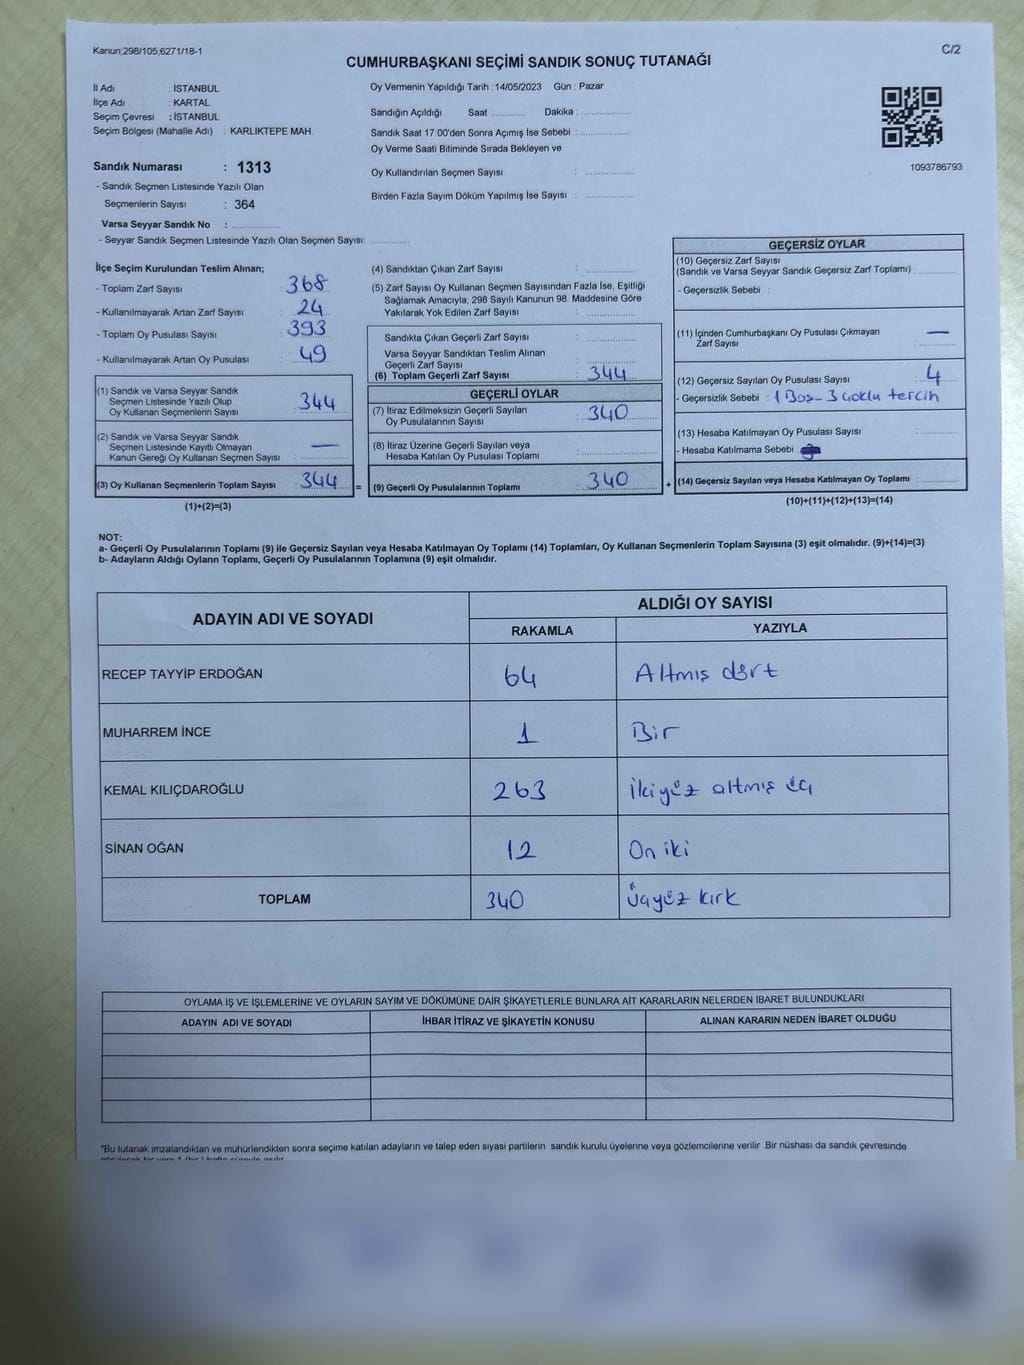 Kanun;298/105,6271/18-1
C/2
CUMHURBAŞKANI SEÇİMİ SANDIK SONUÇ TUTANAĞI
İl Adı : İSTANBUL
İlçe Adı : KARTAL
Seçim Çevresi : İSTANBUL
Seçim Bölgesi (Mahalle Adı) : KARLIKTEPE MAH.
Sandık Numarası : 1313
- Sandık Seçmen Listesinde Yazılı Olan
Seçmenlerin Sayısı : 364
Varsa Seyyar Sandık No :
- Seyyar Sandık Seçmen Listesinde Yazılı Olan Seçmen Sayısı:
Oy Vermenin Yapıldığı Tarih : 14/05/2023 Gün : Pazar
Sandığın Açıldığı Saat : Dakika :
Sandık Saat 17.00'den Sonra Açımış İse Sebebi :
Oy Verme Saati Bitiminde Sırada Bekleyen ve
Oy Kullandırılan Seçmen Sayısı :
Birden Fazla Sayım Döküm Yapılmış İse Sayısı :
1093786793
İlçe Seçim Kurulundan Teslim Alınan;
- Toplam Zarf Sayısı : 368
- Kullanılmayarak Artan Zarf Sayısı : 24
- Toplam Oy Pusulası Sayısı : 393
- Kullanılmayarak Artan Oy Pusulası : 49
(1) Sandık ve Varsa Seyyar Sandık
Seçmen Listesinde Yazılı Olup
Oy Kullanan Seçmenlerin Sayısı : 344
(2) Sandık ve Varsa Seyyar Sandık
Seçmen Listesinde Kayıtlı Olmayan
Kanun Gereği Oy Kullanan Seçmen Sayısı : —
(3) Oy Kullanan Seçmenlerin Toplam Sayısı : 344 =
(1)+(2)=(3)
(4) Sandıktan Çıkan Zarf Sayısı :
(5) Zarf Sayısı Oy Kullanan Seçmen Sayısından Fazla İse, Eşitliği
Sağlamak Amacıyla, 298 Sayılı Kanunun 98. Maddesine Göre
Yakılarak Yok Edilen Zarf Sayısı :
Sandıkta Çıkan Geçerli Zarf Sayısı :
Varsa Seyyar Sandıktan Teslim Alınan
Geçerli Zarf Sayısı :
(6) Toplam Geçerli Zarf Sayısı : 344
GEÇERLİ OYLAR
(7) İtiraz Edilmeksizin Geçerli Sayılan
Oy Pusulalarının Sayısı : 340
(8) İtiraz Üzerine Geçerli Sayılan veya
Hesaba Katılan Oy Pusulası Toplamı :
(9) Geçerli Oy Pusulalarının Toplamı : 340 +
GEÇERSİZ OYLAR
(10) Geçersiz Zarf Sayısı
(Sandık ve Varsa Seyyar Sandık Geçersiz Zarf Toplamı) :
- Geçersizlik Sebebi :
(11) İçinden Cumhurbaşkanı Oy Pusulası Çıkmayan
Zarf Sayısı : —
(12) Geçersiz Sayılan Oy Pusulası Sayısı : 4
- Geçersizlik Sebebi : 1 Boş - 3 Çoklu tercih
(13) Hesaba Katılmayan Oy Pusulası Sayısı :
- Hesaba Katılmama Sebebi :
(14) Geçersiz Sayılan veya Hesaba Katılmayan Oy Toplamı :
(10)+(11)+(12)+(13)=(14)
NOT:
a- Geçerli Oy Pusulalarının Toplamı (9) ile Geçersiz Sayılan veya Hesaba Katılmayan Oy Toplamı (14) Toplamları, Oy Kullanan Seçmenlerin Toplam Sayısına (3) eşit olmalıdır. (9)+(14)=(3)
b- Adayların Aldığı Oyların Toplamı, Geçerli Oy Pusulalarının Toplamına (9) eşit olmalıdır.
ADAYIN ADI VE SOYADI
ALDIĞI OY SAYISI
RAKAMLA YAZIYLA
RECEP TAYYİP ERDOĞAN 64 Altmış dört
MUHARREM İNCE 1 Bir
KEMAL KILIÇDAROĞLU 263 İkiyüz altmış üç
SİNAN OĞAN 12 On iki
TOPLAM 340 Üçyüz kırk
OYLAMA İŞ VE İŞLEMLERİNE VE OYLARIN SAYIM VE DÖKÜMÜNE DAİR ŞİKAYETLERLE BUNLARA AİT KARARLARIN NELERDEN İBARET BULUNDUKLARI
ADAYIN ADI VE SOYADI İHBAR İTİRAZ VE ŞİKAYETİN KONUSU ALINAN KARARIN NEDEN İBARET OLDUĞU
*Bu tutanak imzalandıktan ve mühürlendikten sonra seçime katılan adayların ve talep eden siyasi partilerin sandık kurulu üyelerine veya gözlemcilerine verilir .Bir nüshası da sandık çevresinde